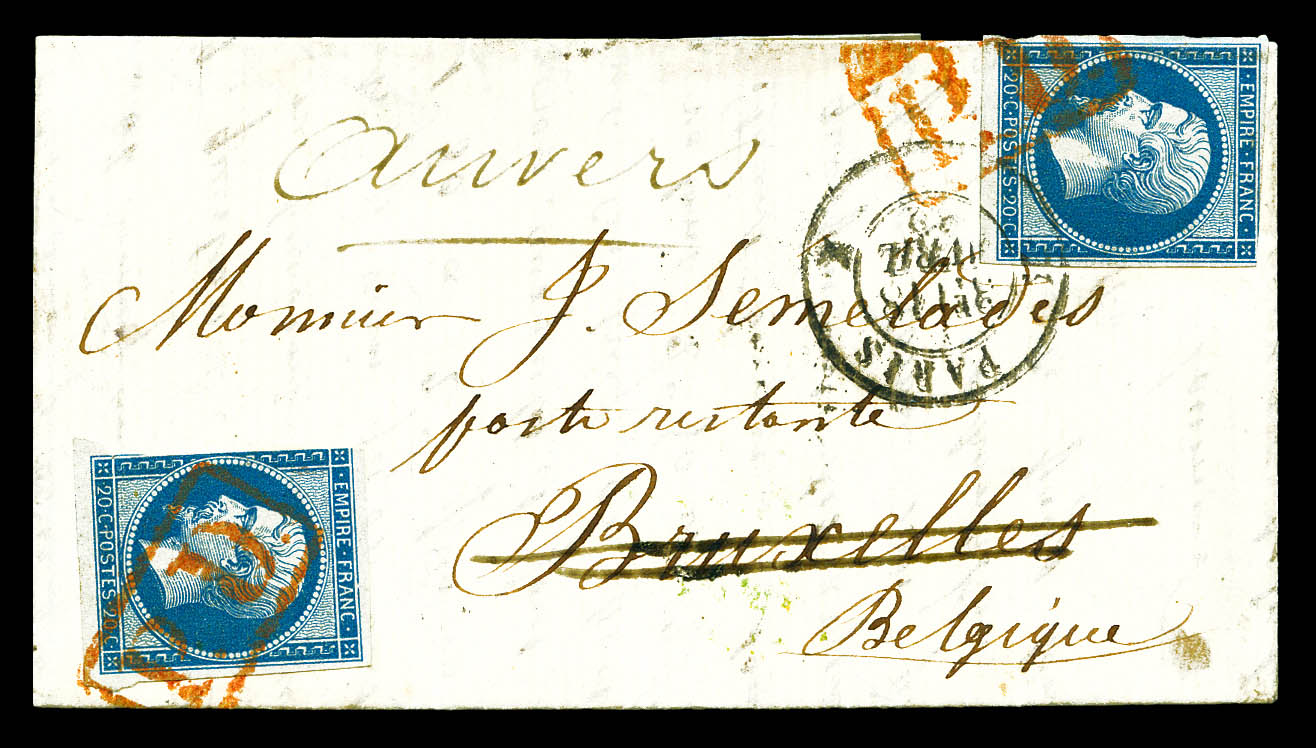 Anvers
Monsieur J. Semelades
poste restante
Bruxelles
Belgique
EMPIRE · FRANC ·
20 · C · POSTES · 20 · C
EMPIRE · FRANC ·
20 · C · POSTES · 20 · C
PARIS
AVRIL